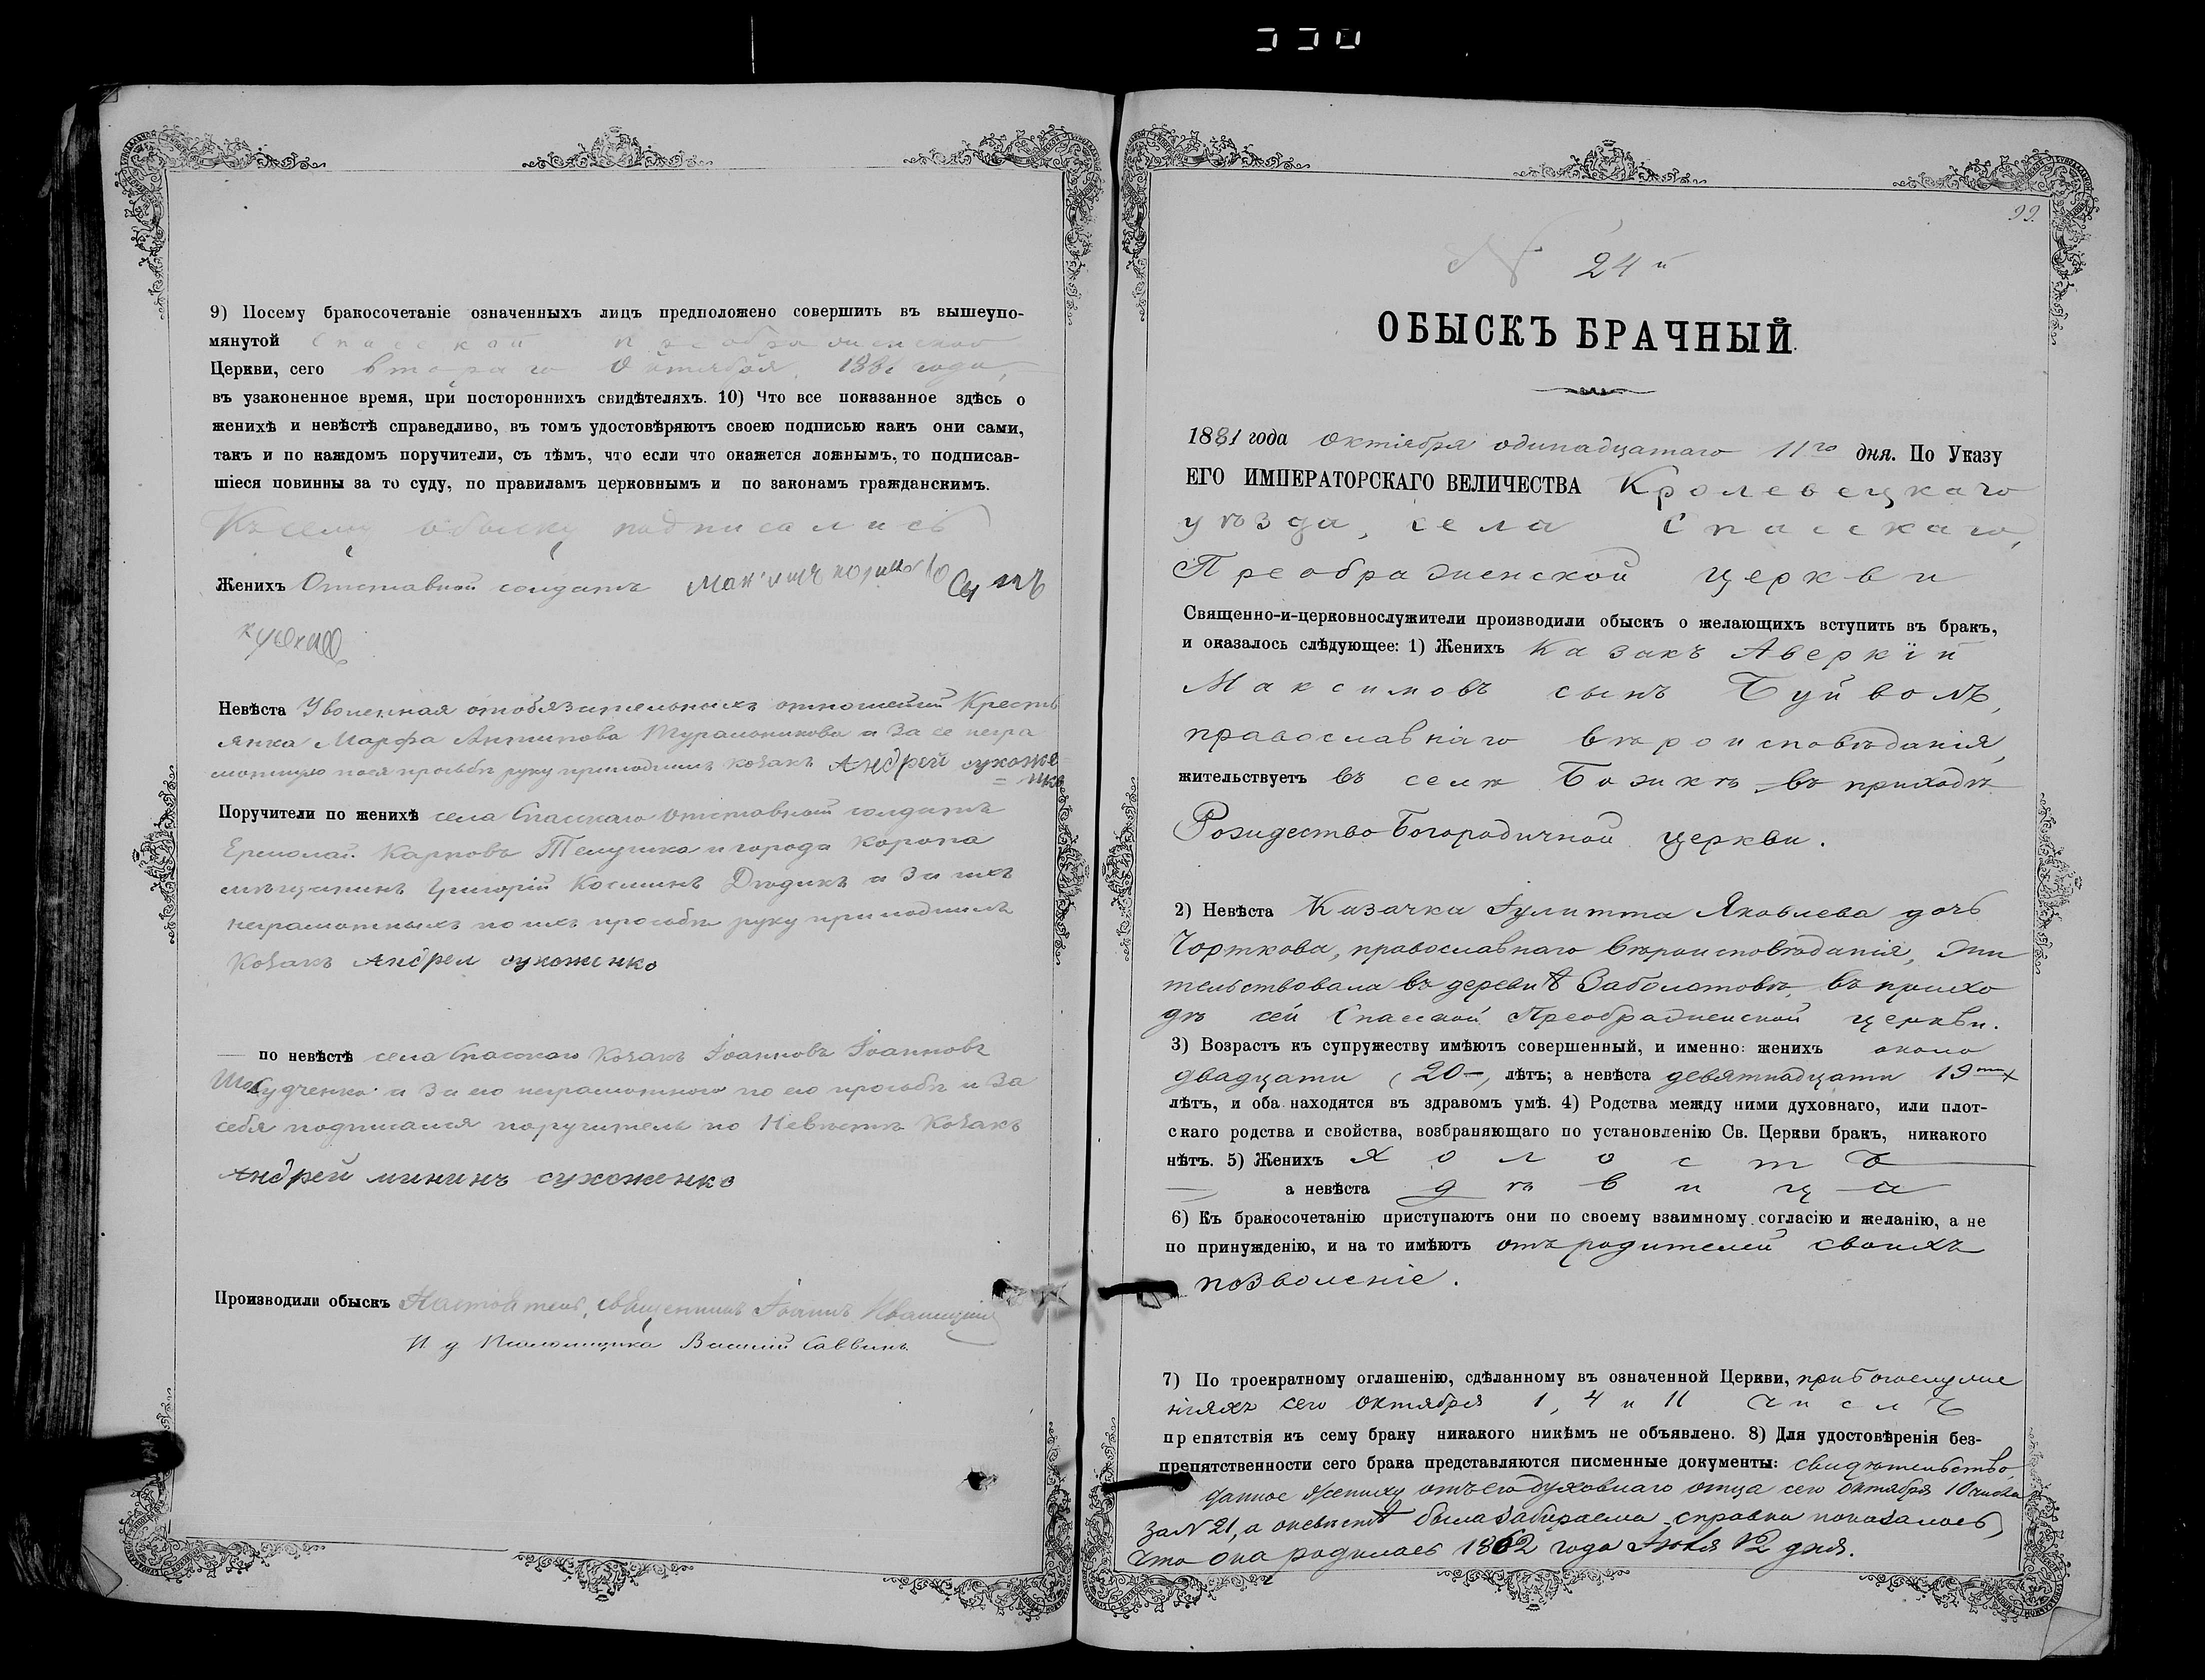 9) Посему бракосочетаніе означенныхъ лицъ предположено совершить въ вышеупо-
мянутой Спасской Преображенской
Церкви, сего втораго Октября 1881 года,
въ узаконенное время, при постороннихъ свидѣтеляхъ. 10) Что все показанное здѣсь о
женихѣ и невѣстѣ справедливо, въ томъ удостовѣряютъ своею подписью какъ они сами,
такъ и по каждомъ поручители, съ тѣмъ, что если что окажется ложнымъ, то подписав-
шіеся повинны за то суду, по правиламъ церковнымъ и по законамъ гражданскимъ.
Къ сему обыску подписались
Женихъ Отставной солдатъ сынъ
Невѣста Уволенная отобязательныхъ отношеній Кресть
янка Марфа Антипова а за ее негра
мотную посяпросьбѣ руку приложилъ козакъ Андрей сухоже
= нко
Поручители по женихѣ села Спасскаго отставной солдатъ
Ермолай Карповъ Телушка и города Коропа
мѣщанинъ Григорій Косминъ Дѣдикъ а за ихъ
неграмотныхъ по ихъ просьбѣ руку приложилъ
Козакъ Андрей сухоженко
— по невѣстѣ села Спасскаго Козакъ Іоанновъ Іоанновъ
а за его неграмотнаго по его просьбѣ и за
себя подписался поручитель по Невѣстѣ Козакъ
Андрей мининъ сухоженко
Производили обыскъ Настоятель, священникъ Іоаннъ
И д Псаломщика Василій Саввинъ
99.
N 24й
ОБЫСКЪ БРАЧНЫЙ.
1881 года октября одинадцатаго 11го дня. По Указу
ЕГО ИМПЕРАТОРСКАГО ВЕЛИЧЕСТВА Кролевецкаго
уѣзда, села Спасскаго,
Преображенской церкви
Священно-и-церковнослужители производили обыскъ о желающихъ вступить въ бракъ,
и оказалось слѣдующее: 1) Женихъ Казакъ Аверкій
Максимовъ сынъ Буйволъ,
православнаго вѣроисповѣданія,
жительствуетъ въ селѣ Божкѣ въ приходѣ
Рождество Богородичной церкви.
2) Невѣста Казачка Іулитта Яковлева дочь
Чорткова, православнаго вѣроисповѣданія, жи
тельствовала въ деревнѣ Заболотовѣ, въ прихо
дѣ сей Спасской Преображенской церкви.
3) Возрастъ къ супружеству имѣютъ совершенный, и именно: женихъ около
двадцати (20–, лѣтъ; а невѣста девятнадцати 19ти
лѣтъ, и оба находятся въ здравомъ умѣ. 4) Родства между ними духовнаго, или плот-
скаго родства и свойства, возбраняющаго по установленію Св. Церкви бракъ, никакого
нѣтъ. 5) Женихъ холостъ
— а невѣста дѣвица
6) Къ бракосочетанію приступаютъ они по своему взаимному согласію и желанію, а не
по принужденію, и на то имѣютъ отъ родителей своихъ
позволеніе.
7) По троекратному оглашенію, сдѣланному въ означенной Церкви, при богослуже
ніяхъ сего октября 1, 4 и 11 числъ
препятствія къ сему браку никакого никѣмъ не объявлено. 8) Для удостовѣренія без-
препятственности сего брака представляются писменные документы: свидѣтельство,
данное жениху отъ его духовнаго отца сего октября 10 числа
за N 21, а оневѣстѣ была забираема справка показалось,
что она родилась 1862 года Іюля 12 дня.